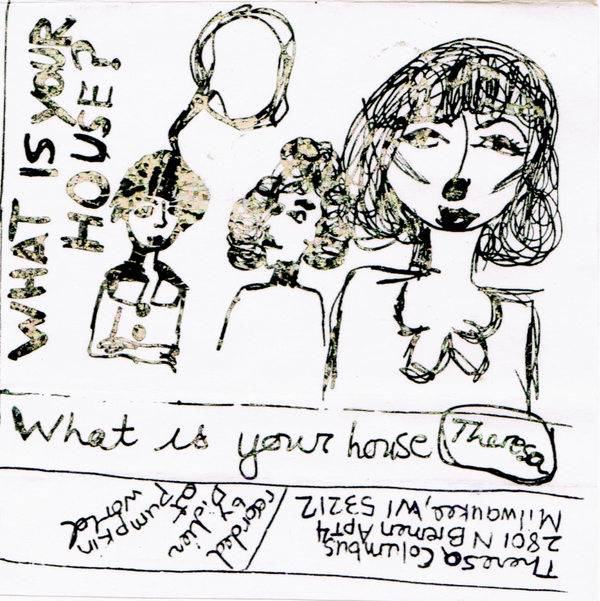 WHAT IS YOUR
HOUSE?
What is your house
Theresa
recorded
by Didier
at
pumpkin
world
Theresa Columbus
2801 N Bremen Apt 4
Milwaukee, WI 53212